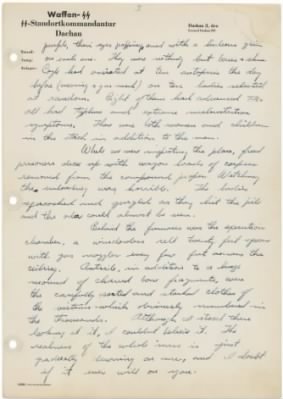 3
Waffen-SS
SS-Standortkommandantur
Dachau
Dachau 3, den
people, their eyes popping and with a hideous grin
on each one. They were nothing but bones & skin.
Capt had assisted at ten autopsies the day
before (wearing a gas mask) on ten bodies selected
at random. Eight of them had advanced TB,
all had typhus and extreme malnutrition
symptoms. There were both women and children
in the stack in addition to the men.
While we were inspecting the place, freed
prisoners drove up with wagon loads of corpses
removed from the compound proper. Watching
the unloading was horrible. The bodies
squooshed and gurgled as they hit the pile
and the odor could almost be seen.
Behind the furnaces was the execution
chamber, a windowless cell twenty feet square
with gas nozzles every few feet across the
ceiling. Outside, in addition to a huge
mound of charred bone fragments, were
the carefully sorted and stacked clothes of
the victims which obviously numbered in
the thousands. Although I stood there
looking at it, I couldn't believe it. The
realness of the whole mess is just
gradually dawning on me, and I doubt
if it ever will on you.